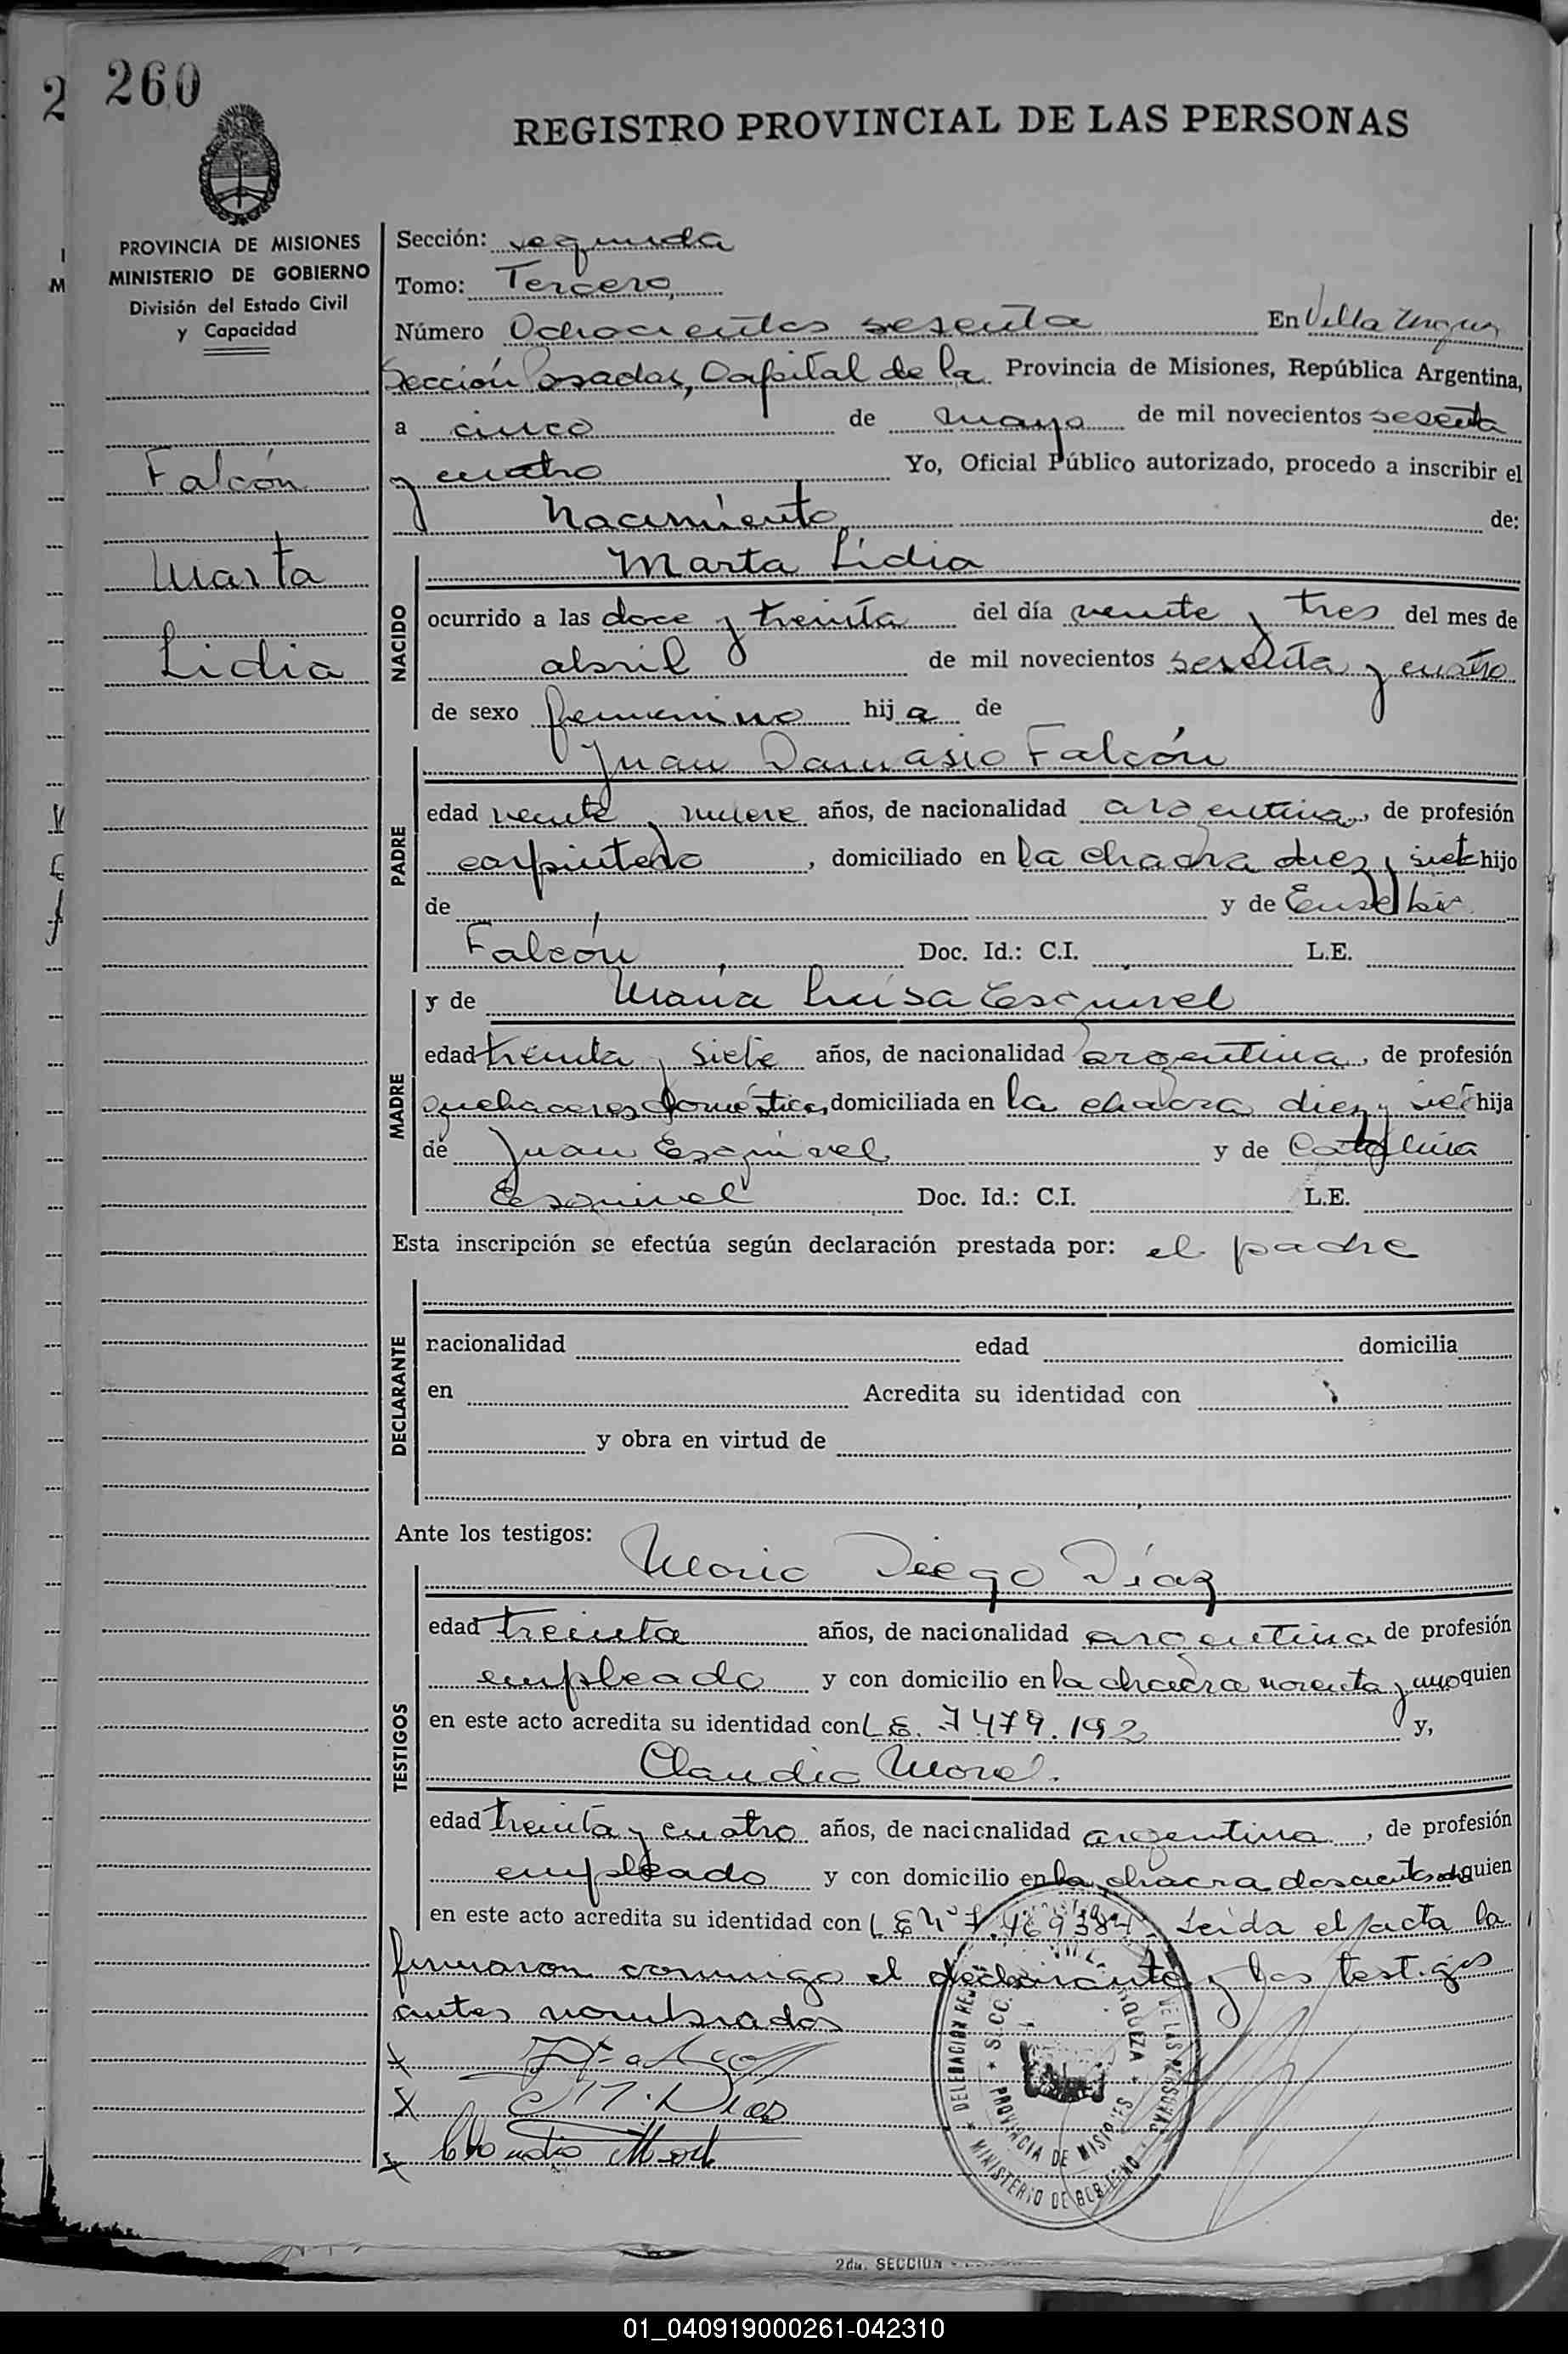 260
REGISTRO PROVINCIAL DE LAS PERSONAS
PROVINCIA DE MISIONES
MINISTERIO DE GOBIERNO
División del Estado Civil
y Capacidad
Falcón
Marta
Lidia
Sección: segunda
Tomo: Tercero
Número Ochocientos sesenta En Villa Urquiza
Sección Posadas, Capital de la Provincia de Misiones, República Argentina,
a cinco de mayo de mil novecientos sesenta
y cuatro Yo, Oficial Público autorizado, procedo a inscribir el
Nacimiento de:
NACIDO
Marta Lidia
ocurrido a las doce y treinta del día veinte y tres del mes de
abril de mil novecientos sesenta y cuatro
de sexo femenino hija de
PADRE
Juan Damasio Falcón
edad veinte y nueve años, de nacionalidad argentina, de profesión
carpintero, domiciliado en la chacra diez y siete hijo
de y de Eusebia
Falcón Doc. Id.: C.I. L.E.
MADRE
y de María Luisa Esquivel
edad treinta y siete años, de nacionalidad argentina, de profesión
quehaceres domésticos, domiciliada en la chacra diez y siete hija
de Juan Esquivel y de Catalina
Esquivel Doc. Id.: C.I. L.E.
Esta inscripción se efectúa según declaración prestada por: el padre
DECLARANTE
nacionalidad edad domicilia
en Acredita su identidad con
y obra en virtud de
Ante los testigos:
TESTIGOS
Mario Diego Díaz
edad treinta años, de nacionalidad argentina de profesión
empleado y con domicilio en la chacra noventa y uno quien
en este acto acredita su identidad con L.E. 7479.192 y,
Claudio Morel.
edad treinta y cuatro años, de nacionalidad argentina, de profesión
empleado y con domicilio en la chacra doscientos quien
en este acto acredita su identidad con L E Nº 7.469384. Leída el acta la
firmaron conmigo el declarante y los testigos
antes nombrados
x
x M. Díaz
x Claudio Morel
DELEGACIÓN DE LAS PERSONAS
SECC. VILLA URQUIZA
PROVINCIA DE MISIONES
MINISTERIO DE GOBIERNO
2da. SECCION
01_040919000261-042310